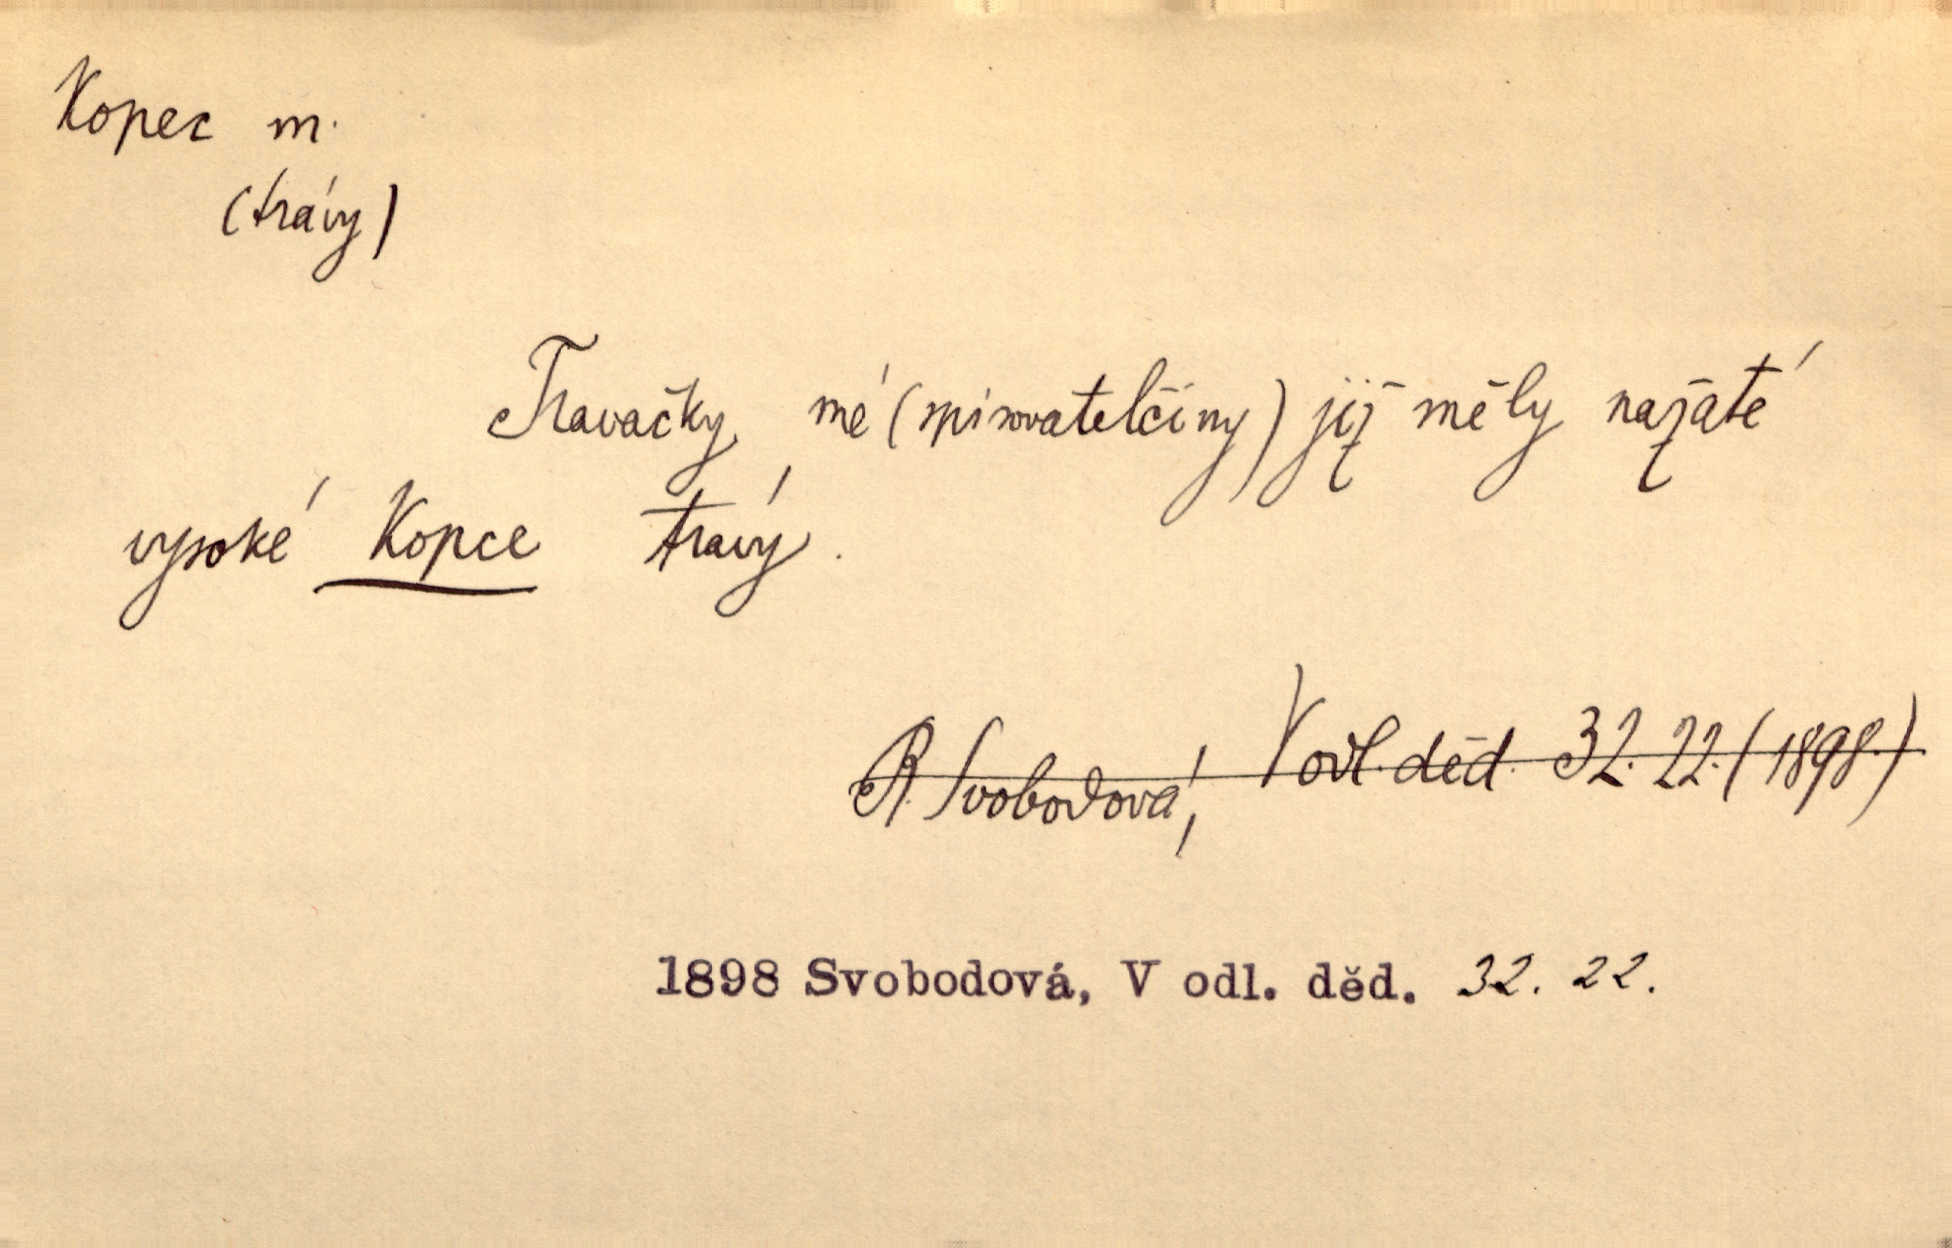 Kopec m.
(trávy)
Travačky mé (spisovatelčiny) již měly najaté
vysoké Kopce trávy.
R. Svobodová, V odl. děd. 32. 22. (1898.)
1898 Svobodová, V odl. děd. 32. 22.